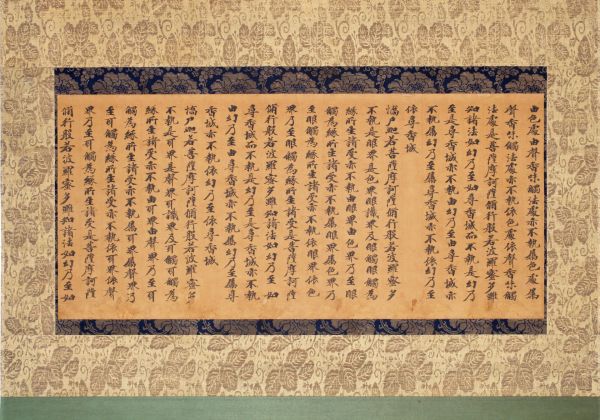 由色處由聲香味觸法處亦不執屬色處屬
聲香味觸法處亦不執依色處依聲香味觸
法處是菩薩摩訶薩修行般若波羅蜜多雖
知諸法如幻乃至如尋香城而不執是幻乃
至是尋香城亦不執由幻乃至由尋香城亦
不執屬幻乃至屬尋香城亦不執依幻乃至
依尋香城
憍尸迦若菩薩摩訶薩修行般若波羅蜜多
不執是眼界是色界眼識界及眼觸眼觸為
緣所生諸受亦不執由眼界由色界乃至眼
觸為緣所生諸受亦不執屬眼界屬色界乃
至眼觸為緣所生諸受亦不執依眼界依色
界乃至眼觸為緣所生諸受是菩薩摩訶薩
修行般若波羅蜜多雖知諸法如幻乃至如
尋香城而不執是幻乃至是尋香城亦不執
由幻乃至由尋香城亦不執屬幻乃至屬尋
香城亦不執依幻乃至依尋香城
憍尸迦若菩薩摩訶薩修行般若波羅蜜多
不執是耳界是聲界耳識界及耳觸耳觸為
緣所生諸受亦不執由耳界由聲界乃至耳
觸為緣所生諸受亦不執屬耳界屬聲界乃
至耳觸為緣所生諸受亦不執依耳界依聲
界乃至耳觸為緣所生諸受是菩薩摩訶薩
修行般若波羅蜜多雖知諸法如幻乃至如